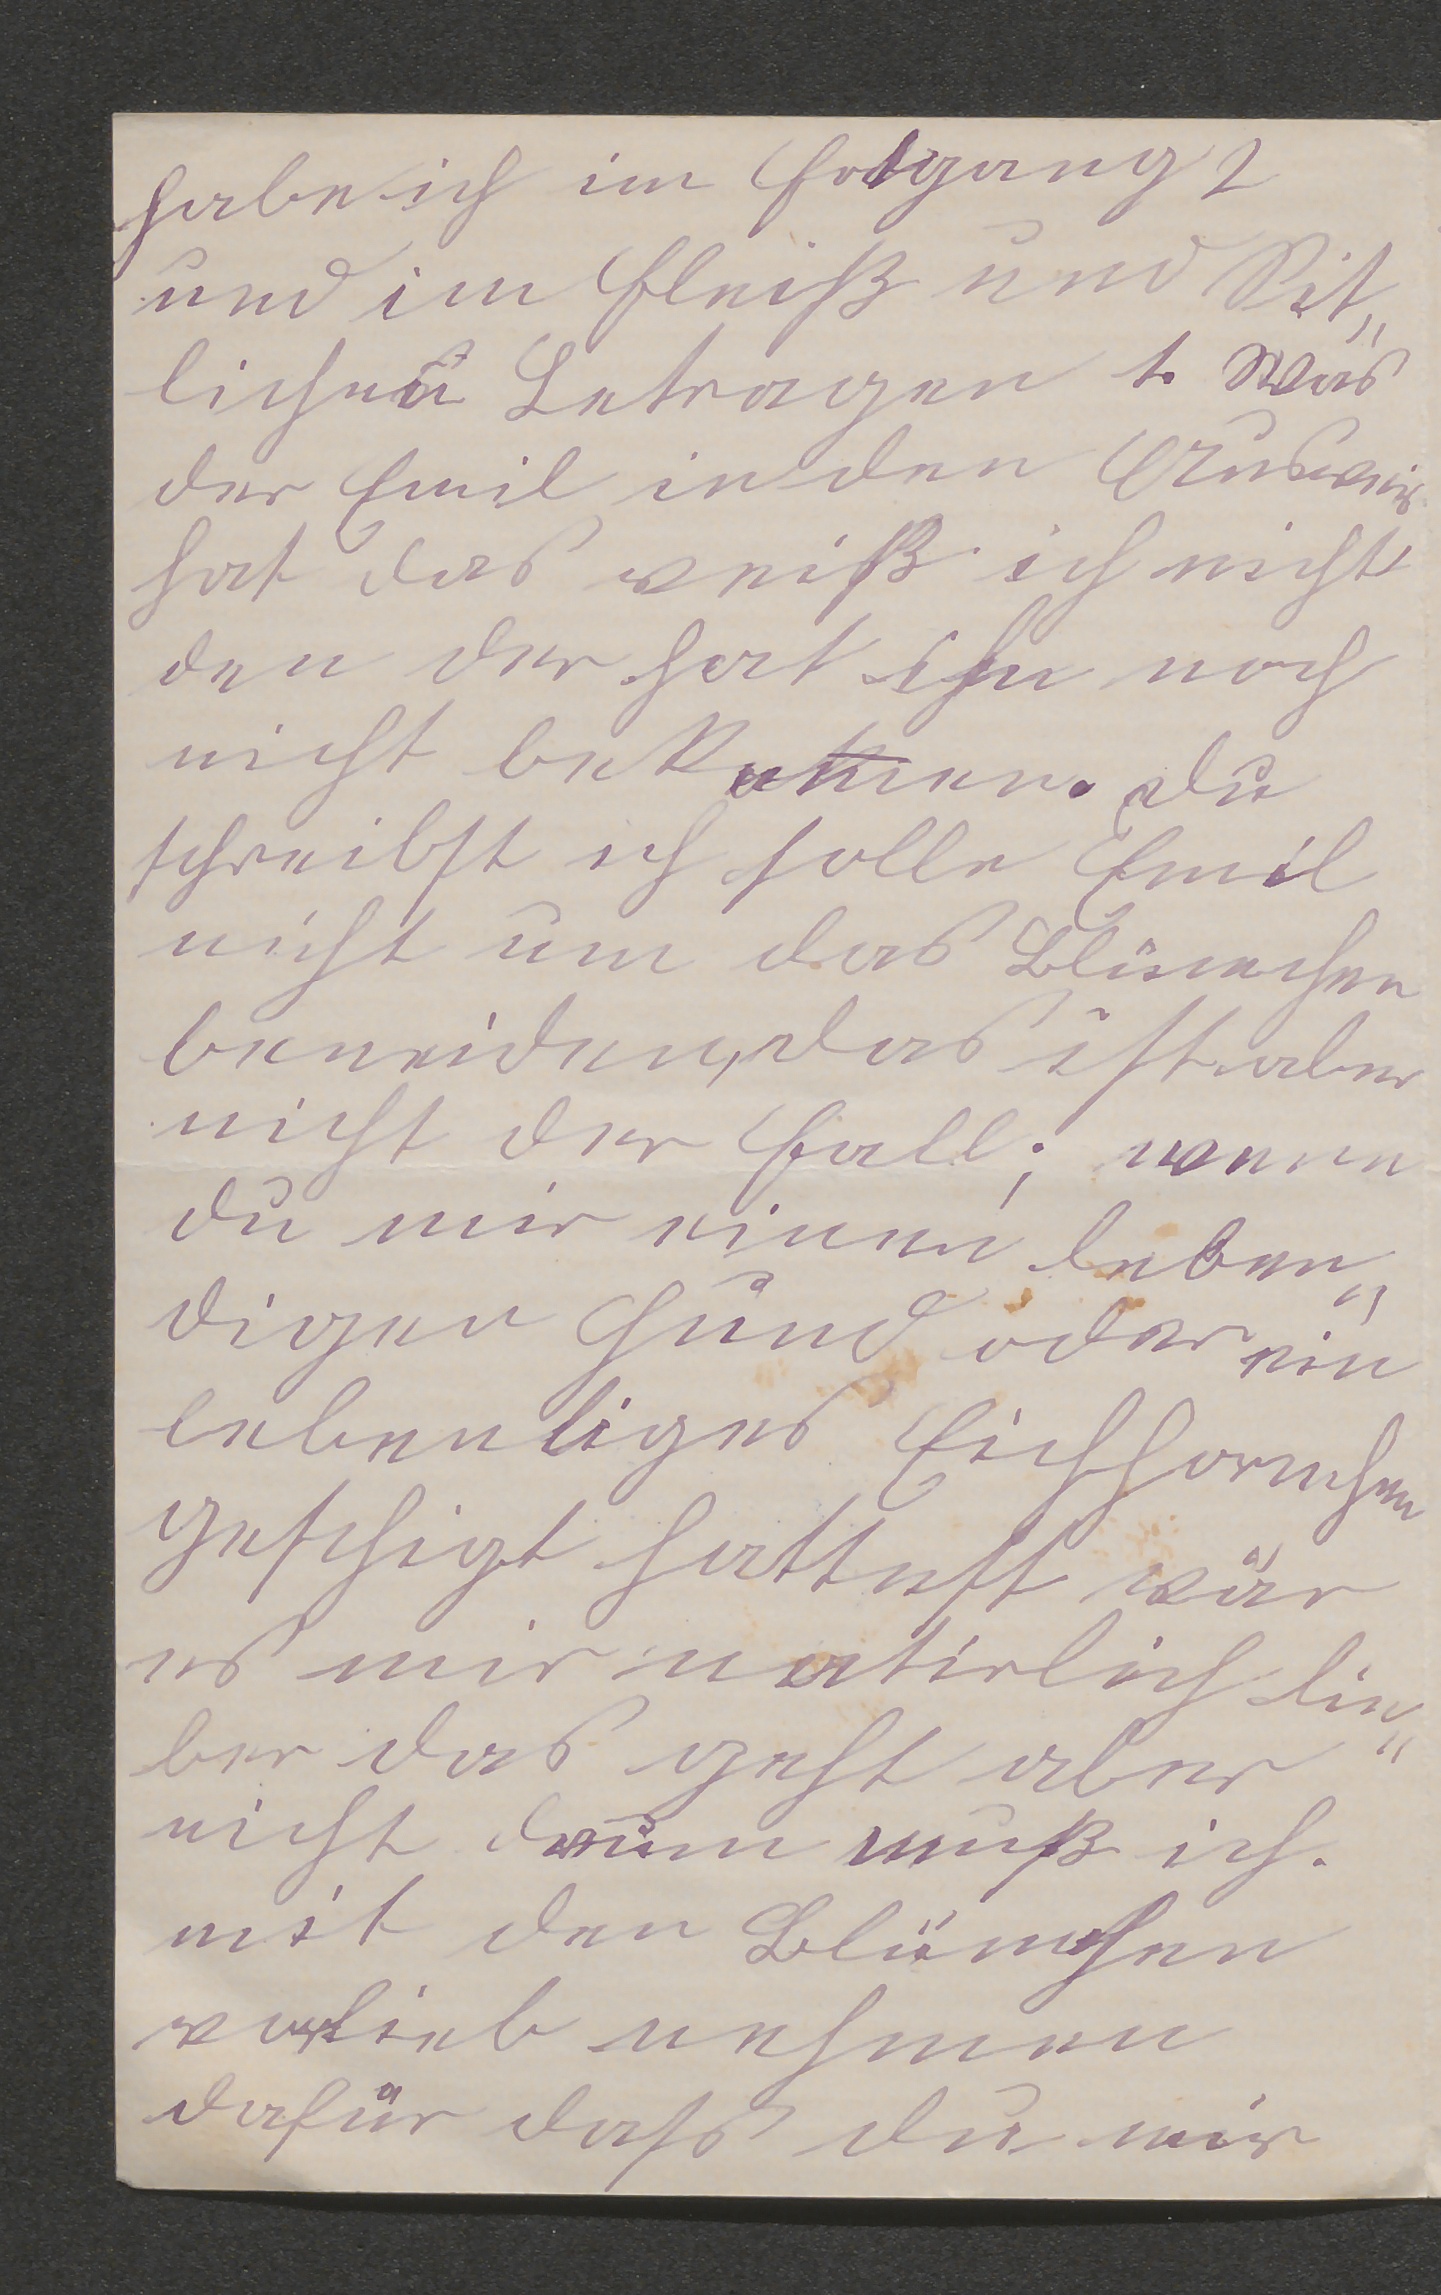 habe ich im Fortgang 2
und im Fleiß und Sit„
lichen Betragen 1. Was
der Emil in den Ausweis
hat das weiß ich nicht
den der hat ihn noch
nicht bekommen. Du
schreibst ich solle Emil
nicht um das Blümchen
beneiden, das ist aber
nicht der Fall; wenn
du mir einen leben„
digen Hund oder ein
lebendiges Eichhornchen
geschigt hattest wär
es mir natirlich lie„
ber das geht aber
nicht drum muß ich.
mit den Blümchen
vorlieb nehmen
dafür dass du mir